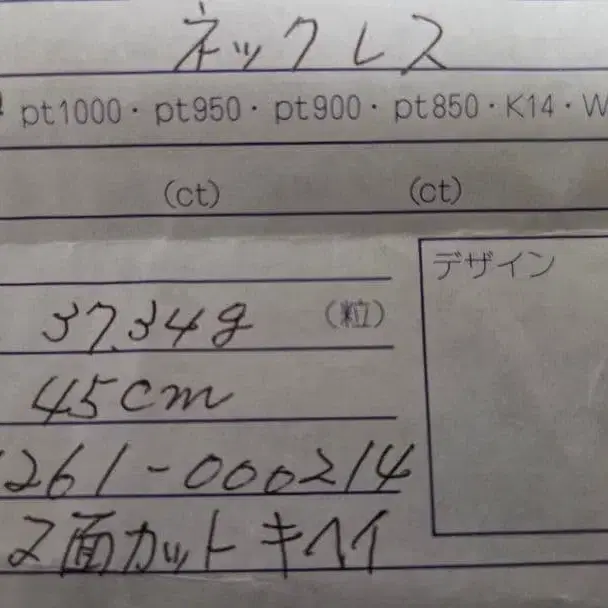 ネックレス
pt1000・pt950・pt900・pt850・K14・W
(ct) (ct)
デザイン
37.34g (粒)
45cm
261-000214
2面カット キヘイ